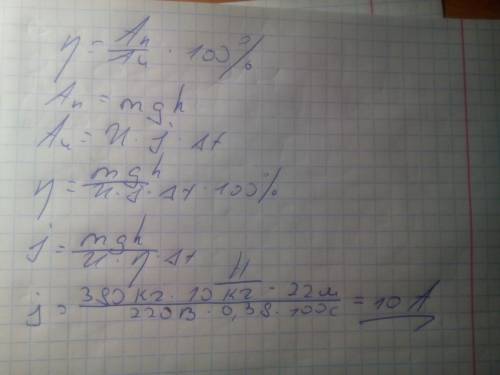 η = Aп / Aч · 100%
Aп = mgh
Aч = U · j · Δt
η = mgh / U · j · Δt · 100%
j = mgh / U · η · Δt
j = 380 кг · 10 Н/кг · 22 м / 220 В · 0,38 · 100 с = 10 A